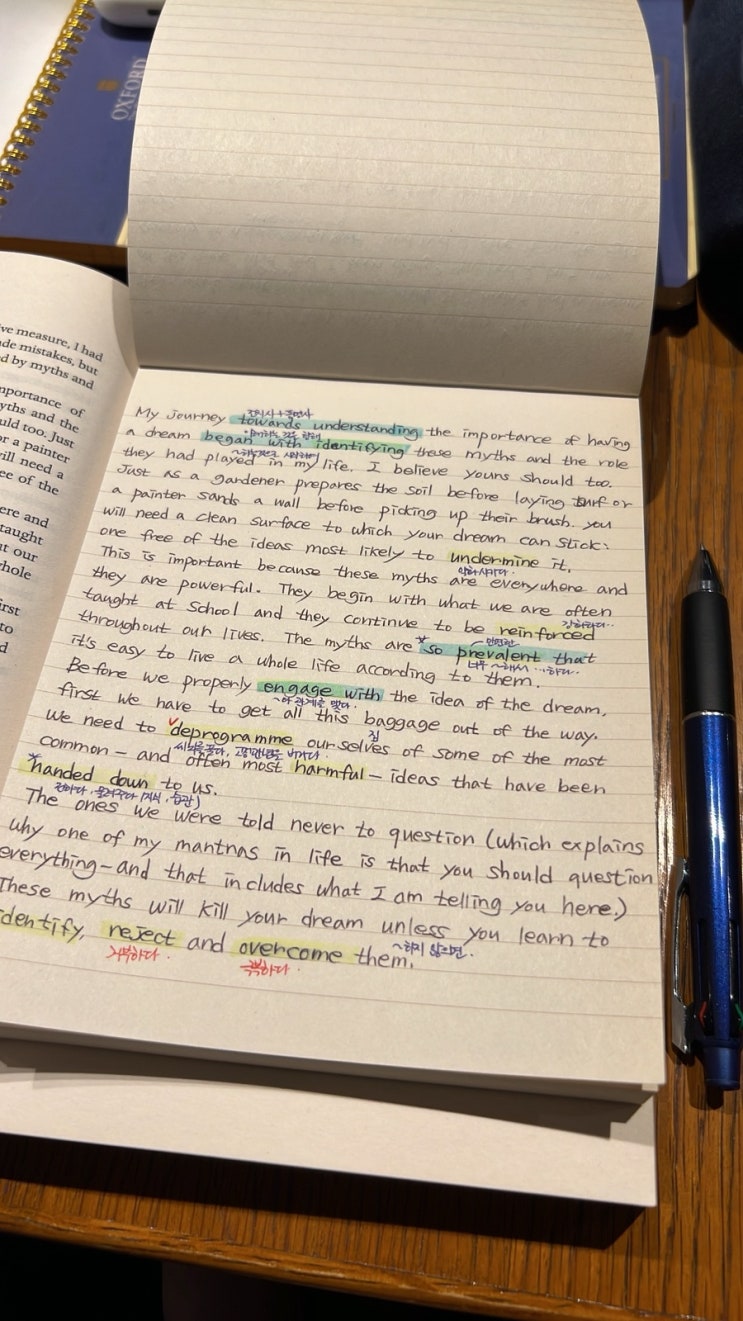 OXFORD
ve measure, I had
de mistakes, but
d by myths and
mportance of
yths and the
uld too. Just
or a painter
vill need a
ee of the
ere and
taught
t our
hole
irst
to
d
전치사+동명사
My Journey towards understanding the importance of having
a dream began with identifying these myths and the role
they had played in my life. I believe yours should too.
Just as a gardener prepares the soil before laying turf or
a painter sands a wall before picking up their brush. you
will need a clean surface to which your dream can stick:
one free of the ideas most likely to undermine it.
약화시키다.
This is important because these myths are everywhere and
they are powerful. They begin with what we are often
taught at School and they continue to be reinforced
강화하다..
throughout our lives. The myths are so prevalent that
만연한
너무 ~해서 ...하다..
it's easy to live a whole life according to them.
Before we properly engage with the idea of the dream,
~와 관계를 맺다.
first we have to get all this baggage out of the way.
짐
We need to deprogramme ourselves of some of the most
common – and often most harmful – ideas that have been
handed down to us.
전하다. 물려주다 (지식, 습관)
The ones we were told never to question (which explains
why one of my mantras in life is that you should question
everything – and that includes what I am telling you here.)
These myths will kill your dream unless you learn to
~하지 않으면.
identify, reject and overcome them.
거부하다.
극복하다.